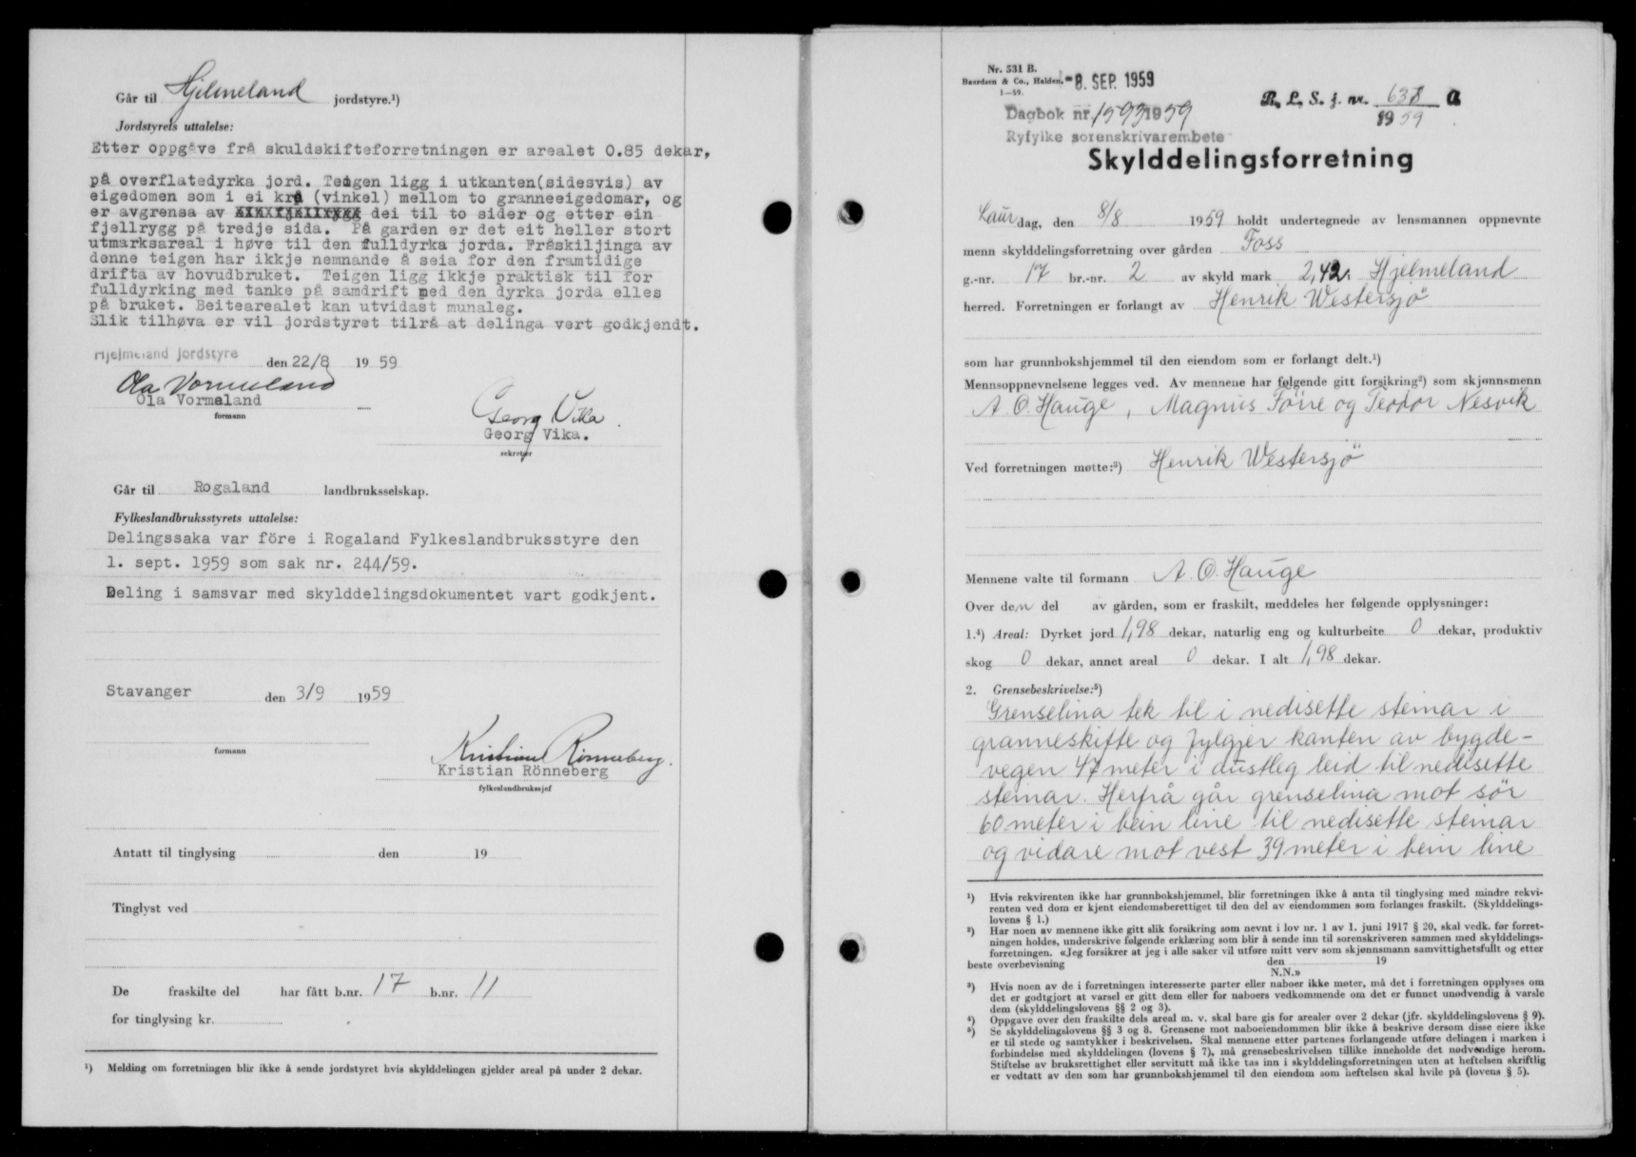 Går til Hjelmeland jordstyre.¹)
Jordstyrets uttalelse:
Etter oppgåve frå skuldskifteforretningen er arealet 0.85 dekar,
på overflatedyrka jord. Teigen ligg i utkanten(sidesvis) av
eigedomen som i ei krå (vinkel) mellom to granneeigedomar, og
er avgrensa av dei til to sider og etter ein
fjellrygg på tredje sida. På garden er det eit heller stort
utmarksareal i høve til den fulldyrka jorda. Fråskiljinga av
denne teigen har ikkje nemnande å seia for den framtidige
drifta av hovudbruket. Teigen ligg ikkje praktisk til for
fulldyrking med tanke på samdrift med den dyrka jorda elles
på bruket. Beitearealet kan utvidast munaleg.
Slik tilhøva er vil jordstyret tilrå at delinga vert godkjendt.
Hjelmeland jordstyre den 22/8 19 59
Ola Vormeland
Ola Vormeland
formann
Georg Vika.
Georg Vika.
sekretær
Går til Rogaland landbruksselskap.
Fylkeslandbruksstyrets uttalelse:
Delingssaka var före i Rogaland Fylkeslandbruksstyre den
1. sept. 1959 som sak nr. 244/59.
Deling i samsvar med skylddelingsdokumentet vart godkjent.
Stavanger den 3/9 1959
formann
Kristian Rönneberg.
Kristian Rönneberg
fylkeslandbrukssjef
Antatt til tinglysing den 19
Tinglyst ved
De fraskilte del har fått b.nr. 17 b.nr. 11
for tinglysing kr.
¹) Melding om forretningen blir ikke å sende jordstyret hvis skylddelingen gjelder areal på under 2 dekar.
Nr. 531 B.
Baardsen & Co., Halden.
1—59.
-8. SEP. 1959
Dagbok nr. 1593 1959
Ryfylke sorenskrivarembete
R. L. S. j. nr. 638 a
1959
Skylddelingsforretning
Laurdag, den 8/8 1959 holdt undertegnede av lensmannen oppnevnte
menn skylddelingsforretning over gården Foss
g.-nr. 17 br.-nr. 2 av skyld mark 2,42. Hjelmeland
herred. Forretningen er forlangt av Henrik Westersjö
som har grunnbokshjemmel til den eiendom som er forlangt delt.¹)
Mennsoppnevnelsene legges ved. Av mennene har følgende gitt forsikring²) som skjønnsmenn
A. O. Hauge, Magnus Förre og Teodor Nesvik
Ved forretningen møtte:³) Henrik Westersjö
Mennene valte til formann A. O. Hauge
Over den del av gården, som er fraskilt, meddeles her følgende opplysninger:
1.⁴) Areal: Dyrket jord 1,98 dekar, naturlig eng og kulturbeite 0 dekar, produktiv
skog 0 dekar, annet areal 0 dekar. I alt 1,98 dekar.
2. Grensebeskrivelse:⁵)
Grenselina tek til i nedisette steinar i
granneskifte og fylgjer kanten av bygde-
vegen 47 meter i austleg leid til nedisette
steinar. Herfrå går grenselina mot sör
60 meter i bein line til nedisette steinar
og vidare mot vest 39 meter i bein line
¹) Hvis rekvirenten ikke har grunnbokshjemmel, blir forretningen ikke å anta til tinglysing med mindre rekvi-
renten ved dom er kjent eiendomsberettiget til den del av eiendommen som forlanges fraskilt. (Skylddelings-
lovens § 1.)
²) Har noen av mennene ikke gitt slik forsikring som nevnt i lov nr. 1 av 1. juni 1917 § 20, skal vedk. før forret-
ningen holdes, underskrive følgende erklæring som blir å sende inn til sorenskriveren sammen med skylddelings-
forretningen. «Jeg forsikrer at jeg i alle saker vil utføre mitt verv som skjønnsmann samvittighetsfullt og etter
beste overbevisning den 19
N.N.»
³) Hvis noen av de i forretningen interesserte parter eller naboer ikke møter, må det i forretningen opplyses om
det er godtgjort at varsel er gitt dem eller for naboers vedkommende om det er funnet unødvendig å varsle
dem (skylddelingslovens §§ 2 og 3).
⁴) Oppgave over den fraskilte dels areal m. v. skal bare gis for arealer over 2 dekar (jfr. skylddelingslovens § 9).
⁵) Se skylddelingslovens §§ 3 og 8. Grensene mot naboeiendommen blir ikke å beskrive dersom disse eiere ikke
er til stede og samtykker i beskrivelsen. Skal mennene etter partenes forlangende utføre delingen i marken i
forbindelse med skylddelingen (lovens § 7), må grensebeskrivelsen tillike inneholde det nødvendige herom.
Stiftelse av bruksrettighet eller servitutt må ikke tas inn i skylddelingsforretningen uten at heftelsen skriftlig
er vedtatt av den som har grunnbokshjemmel til den eiendom som heftelsen skal hvile på (lovens § 5).